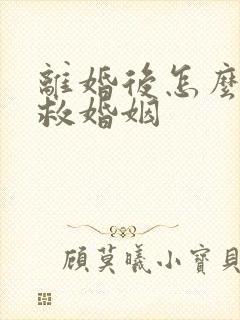 離婚後怎麼
救婚姻
顧莫曦小寶貝